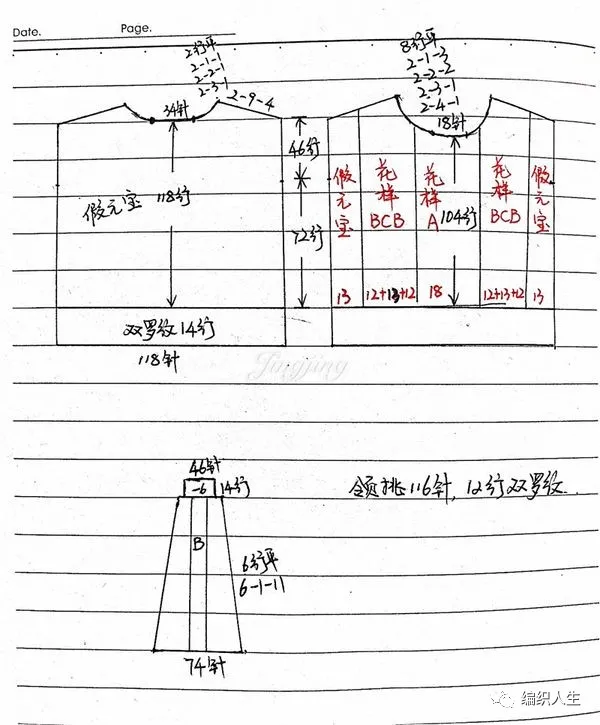 Date.
Page.
2行平
2-1-1
2-2-1
2-3-1
2-9-4
34针
8行平
2-1-3
2-2-2
2-3-1
2-4-1
18针
46行
72行
假元宝 118行
假元宝
花样BCB
花样A
104行
花样BCB
假元宝
13
12+13+12
18
12+13+12
13
双罗纹14行
118针
Jingjing
46针
-6
14行
B
6行平
6-1-11
74针
领挑116针，12行双罗纹.
编织人生